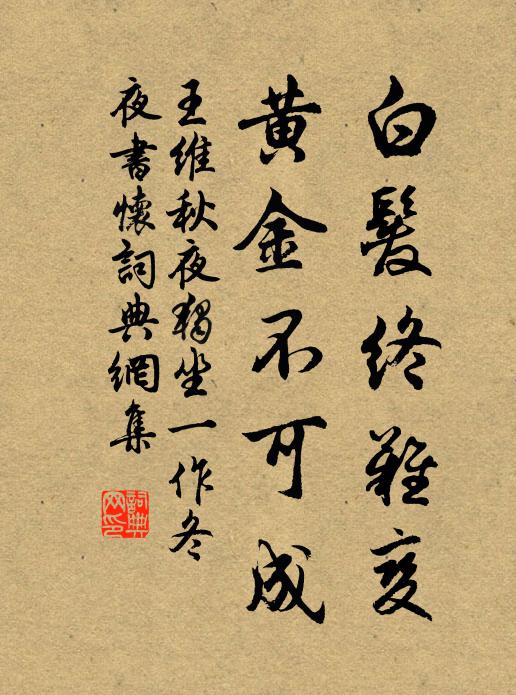 白髮終難変
黃金不可成
王維秋夜獨坐一作冬
夜書懷詞典網集
詞典網印